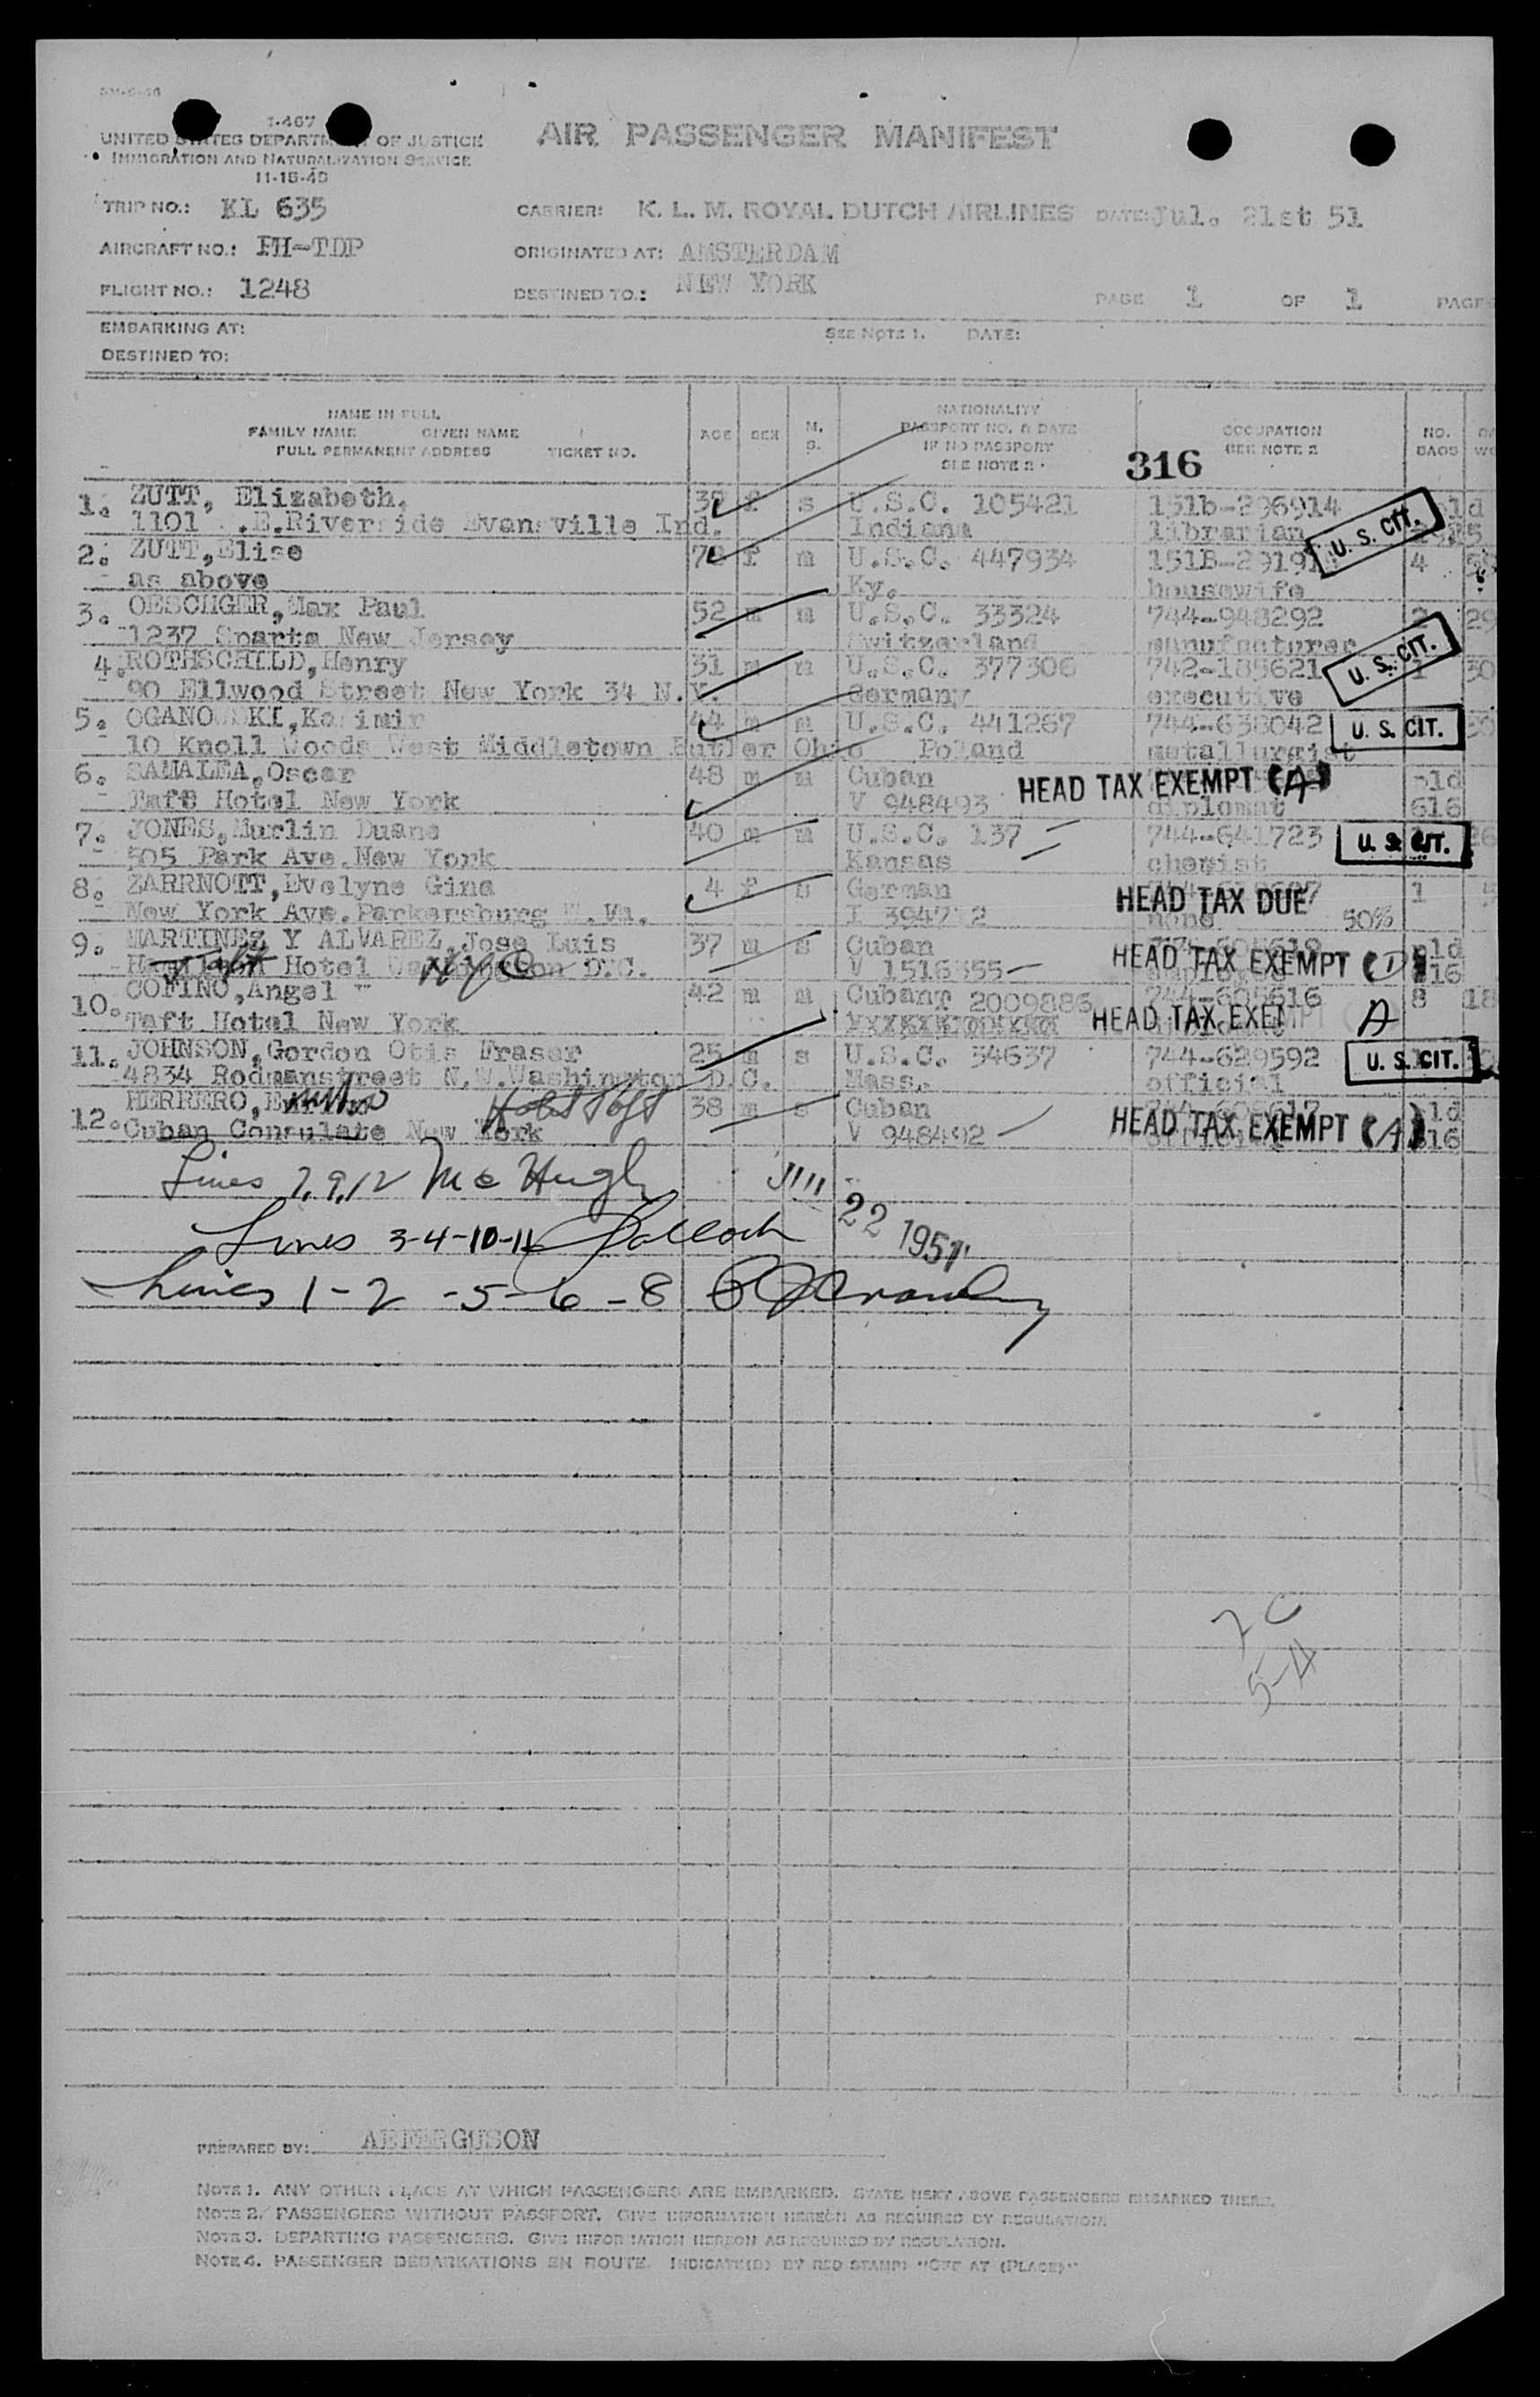 1-467
UNITED STATES DEPARTMENT OF JUSTICE
IMMIGRATION AND NATURALIZATION SERVICE
11-15-45
AIR PASSENGER MANIFEST
TRIP NO.: KL 635
CARRIER: K. L. M. ROYAL DUTCH AIRLINES DATE: Jul. 21st 51
AIRCRAFT NO.: PH-TDP
ORIGINATED AT: AMSTERDAM
FLIGHT NO.: 1248
DESTINED TO.: NEW YORK
PAGE 1 OF 1 PAGE
EMBARKING AT: SEE NOTE 1. DATE:
DESTINED TO:
NAME IN FULL
FAMILY NAME GIVEN NAME
FULL PERMANENT ADDRESS TICKET NO.
AGE SEX M. S.
NATIONALITY
PASSPORT NO. & DATE
IF NO PASSPORT
SEE NOTE 2.
OCCUPATION
SEE NOTE 2
NO. BAGS
316
1. ZUTT, Elizabeth. f s U.S.C. 105421 151b-296914 pld
1101 .E.Riverside Evansville Ind. Indiana librarian U. S. CIT.
2. ZUTT,Elise f m U.S.C. 447934 4
as above Ky. housewife
3. OESCHGER,Max Paul 52 m m U.S.C. 33324 744-948292 2 29
1237 Sparta New Jersey Switzerland manufacturer U. S. CIT.
4. ROTHSCHILD,Henry 31 m m U.S.C. 377306 742-185621 1 30
90 Ellwood Street New York 34 N.Y. Germany executive
5. OGANOWSKI,Kasimir 44 m m U.S.C. 441267 744-638042 U. S. CIT.
10 Knoll Woods West Middletown Butler Ohio Poland metallurgist
6. SAMALEA,Oscar 48 m m Cuban HEAD TAX EXEMPT (A) pld
Taft Hotel New York V 948493 diplomat 616
7. JONES,Murlin Duane 40 m m U.S.C. 137 744-641723 U. S. CIT. 26
505 Park Ave.New York Kansas chemist
8. ZARRNOTT,Evelyne Gina 4 f s German HEAD TAX DUE 1
New York Ave.Parkersburg W.Va. none 50%
9. MARTINEZ Y ALVAREZ,Jose Luis 37 m s Cuban HEAD TAX EXEMPT (D) pld
Taft Hotel NYC D.C. V 1516355
10. COFINO,Angel 42 m m Cuban 2009886 744-605616 8 18
Taft Hotel New York HEAD TAX EXEMPT A
11. JOHNSON,Gordon Otis Fraser 25 m s U.S.C. 54637 744-629592 U. S. CIT.
4834 Rodmanstreet N.W.Washington D.C. Mass. official
12. HERRERO, 38 m s Cuban pld
Cuban Consulate New York Hotel Taft V 948492 HEAD TAX EXEMPT (A) 616
Lines 7, 9, 12 McHugh
JUL 22 1951
Lines 3-4-10-11
Lines 1-2-5-6-8
7C
5-A
PREPARED BY: AEFERGUSON
NOTE 1. ANY OTHER PLACE AT WHICH PASSENGERS ARE EMBARKED. STATE NEXT ABOVE PASSENGERS EMBARKED THERE.
NOTE 2. PASSENGERS WITHOUT PASSPORT. GIVE INFORMATION HEREON AS REQUIRED BY REGULATION.
NOTE 3. DEPARTING PASSENGERS. GIVE INFORMATION HEREON AS REQUIRED BY REGULATION.
NOTE 4. PASSENGER DEBARKATIONS EN ROUTE. INDICATE(D) BY RED STAMP: "OFF AT (PLACE)"